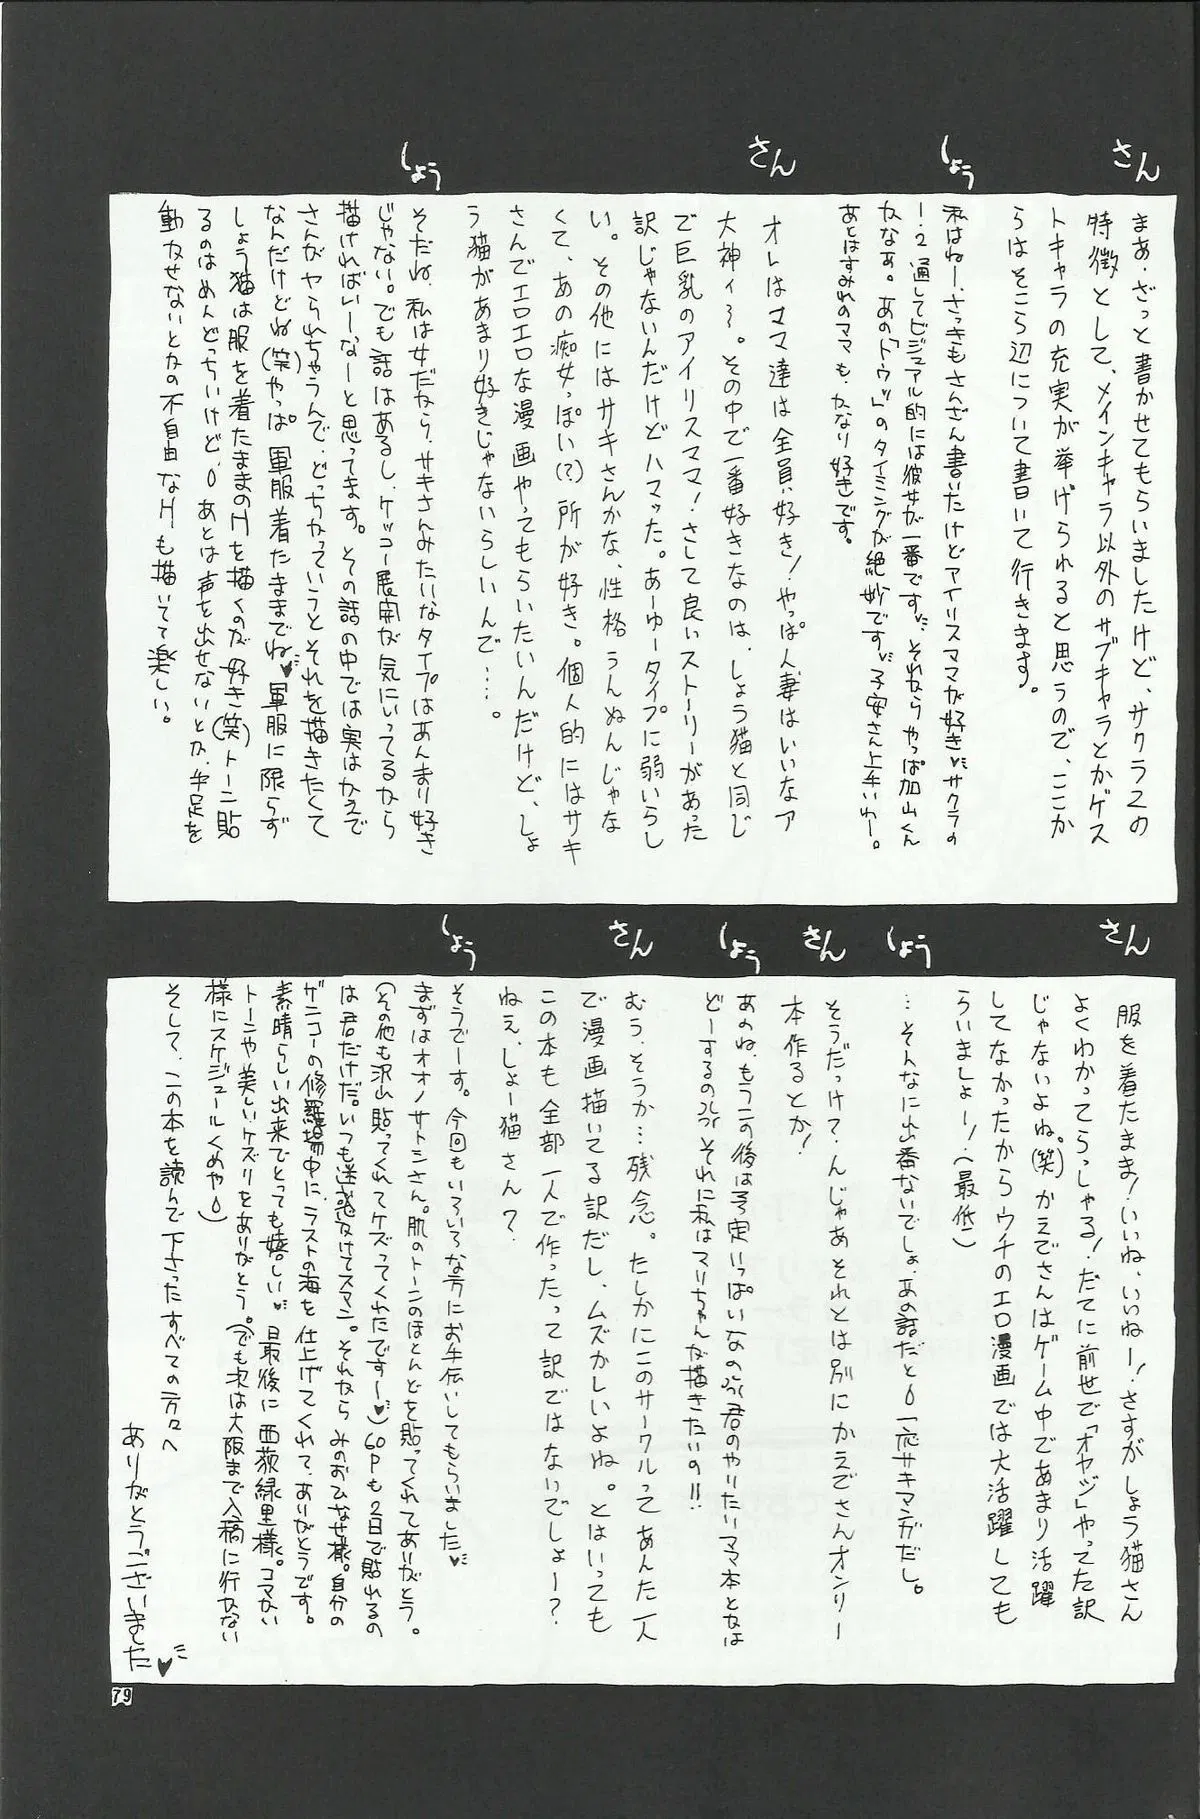 さん
まあ、ざっと書かせてもらいましたけど、サクラ2の
特徴として、メインキャラ以外のサブキャラとかゲス
トキャラの充実が挙げられると思うので、ここか
らはそこら辺について書いて行きます。
しょう
私はねー、さっきもさんざん書いたけどアイリスママが好き サクラの
1・2通してビジュアル的には彼女が一番です それならやっぱ加山くん
かなあ。あの「トウッ」のタイミングが絶妙です 子安さん上手いわー。
あとはすみれのママも、かなり好きです。
さん
オレはママ達は全員好き!やっぱ人妻はいいなァ
大神ィ〜。その中で一番好きなのは、しょう猫と同じ
で巨乳のアイリスママ!さして良いストーリーがあった
訳じゃないんだけどハマった。あーゆータイプに弱いらし
い。その他にはサキさんかな、性格うんぬんじゃな
くて、あの痴女っぽい(?)所が好き。個人的にはサキ
さんでエロエロな漫画やってもらいたいんだけど、しょ
う猫があまり好きじゃないらしいんで…。
しょう
そだね、私は女だから、サキさんみたいなタイプはあんまり好き
じゃない。でも話はあるし、ケッコー展開が気にいってるなら
描ければいーなーと思ってます。その話の中では実はかえで
さんがヤられちゃうんで、どっちかっていうとそれを描きたくて
なんだけどね(笑)やっぱ軍服着たままでね♥軍服に限らず
しょう猫は服を着たままのHを描くのが好き(笑)トーン貼
るのはめんどっちいけど、あとは声を出せないとか、手足を
動かせないとかの不自由なHも描いてて楽しい。
さん
服を着たまま!いいね、いいねー!さすがしょう猫さん
よくわかってらっしゃる!だてに前世で「オヤジ」やってた訳
じゃないよね。(笑)かえでさんはゲーム中であまり活躍
してなかったからウチのエロ漫画では大活躍しても
らいましょー!(最低)
しょう
…そんなに出番ないでしょ、あの話だと 一応サキマンガだし。
さん
そうだっけ?んじゃあそれとは別にかえでさんオンリー
本作るとか!
しょう
あのね、もうこの後は予定いっぱいなの 君のやりたいママ本とかは
どーするの それに私はマリちゃんが描きたいの!!
さん
むう、そうか…残念。たしかにこのサークルってあんた一人
で漫画描いてる訳だし、ムズかしいよね。とはいっても
この本も全部一人で作ったって訳ではないでしょー?
ねえ、しょー猫さん?
しょう
そうでーす。今回もいろいろな方にお手伝いしてもらいました♥
まずはオオノサトシさん。肌のトーンのほとんどを貼ってくれてありがとう。
(その他も沢山貼ってくれてケズってくれたですー♥)60Pも2日で貼れるの
は君だけだ。いつも迷惑かけてスマン。それから みのおひなせ様。自分の
ザニコーの修羅場中に、ラストの海を仕上げてくれて、ありがとうです。
素晴らしい出来でとっても嬉しい 最後に西荻緑里様。コマかい
トーンや美しいケズリをありがとう。(でも次は大阪まで入稿に行かない
様にスケジュールくめや)
そして、この本を読んで下さったすべての方々へ
ありがとうございました♥
79